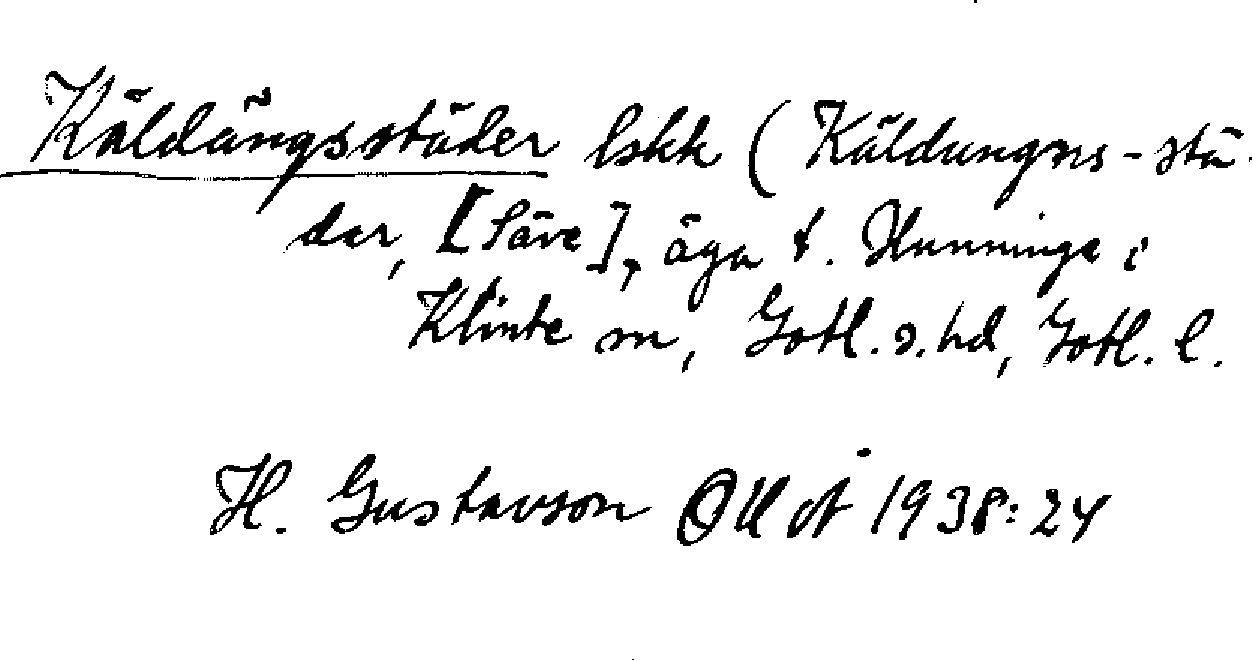 Käldängsstäder lskk (Käldungns-stä-
der, [Säve], äga t. Hunninge i
Klinte sn, Gotl. s. hd, Gotl. l.
H. Gustavson 1938:24